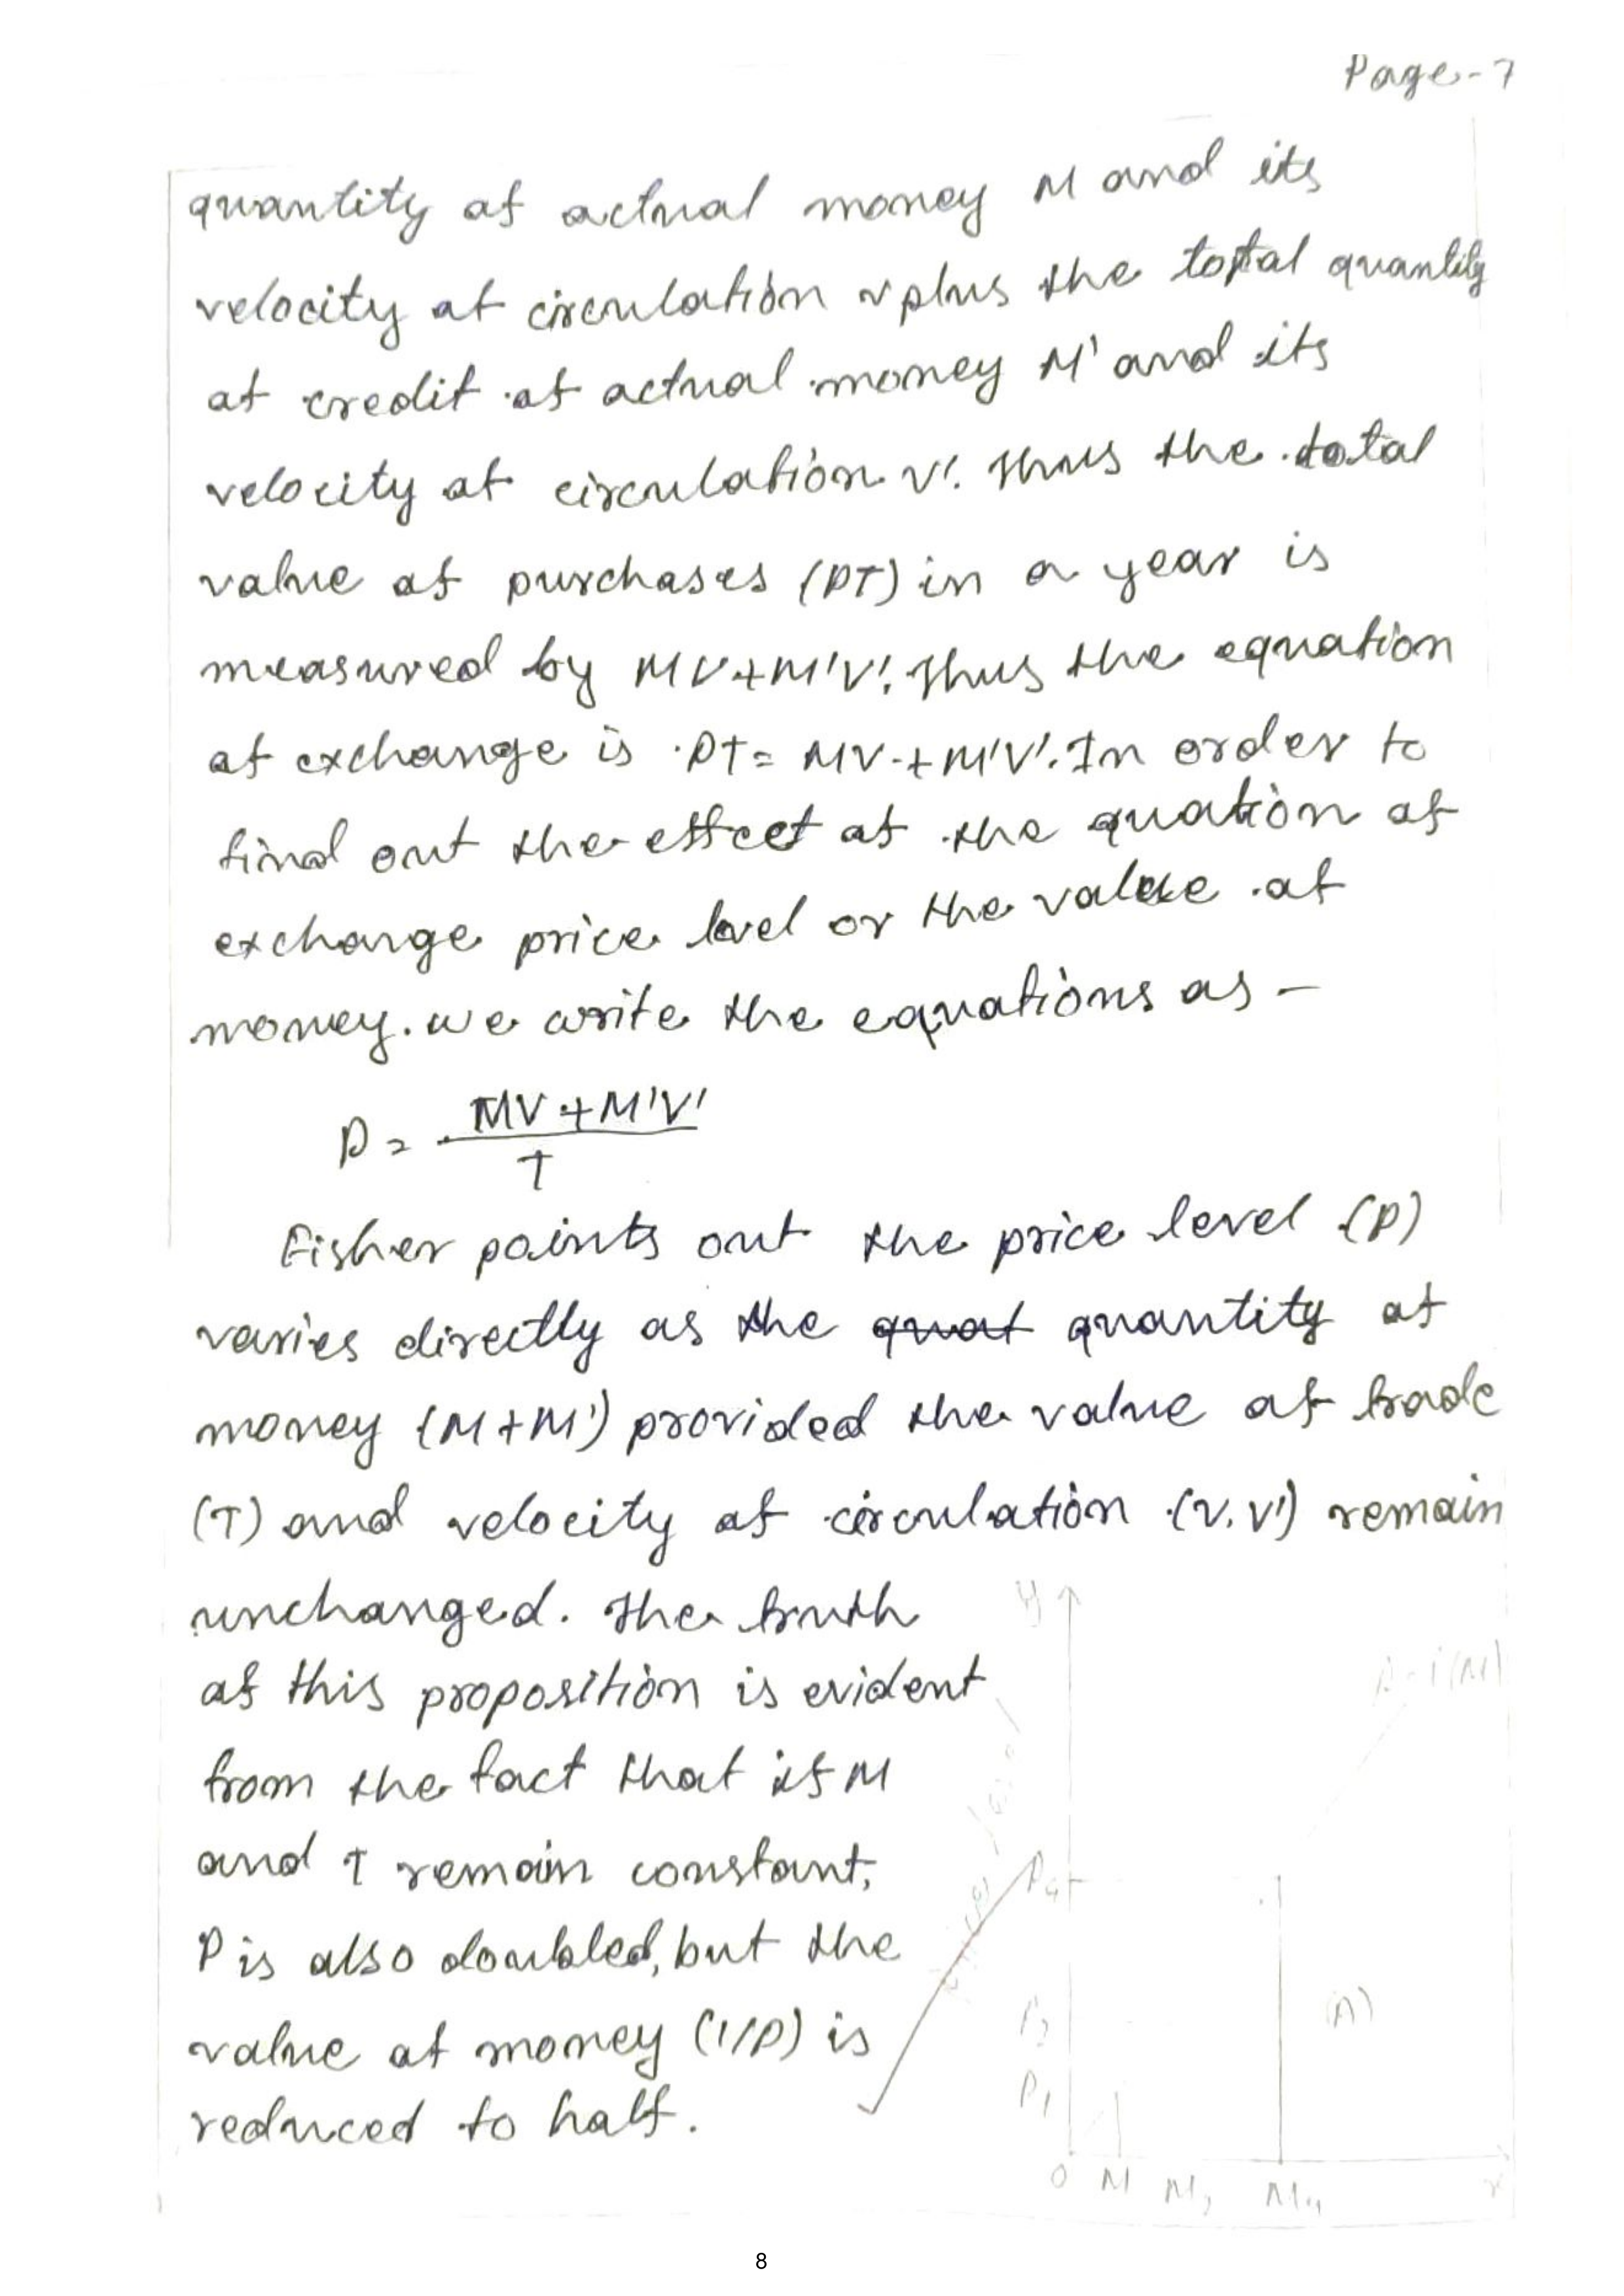 Page-7
quantity of actual money M and its
velocity of circulation v plus the total quantity
of credit of actual money M' and its
velocity of circulation V'. Thus the total
value of purchases (PT) in a year is
measured by MV+M'V'. Thus the equation
of exchange is PT= MV+M'V'. In order to
find out the effect of the quation of
exchange price level or the value of
money. we write the equations as -
P = MV+M'V'
T
Fisher points out the price level (P)
varies directly as the quat quantity of
money (M+M') provided the value of trade
(T) and velocity of circulation (V.V') remain
unchanged. The truth
of this proposition is evident
from the fact that if M
and T remain constant,
P is also doubled, but the
value of money (1/P) is
reduced to half.
y
P4
P2
(A)
P1
O M M2 M4 x
8